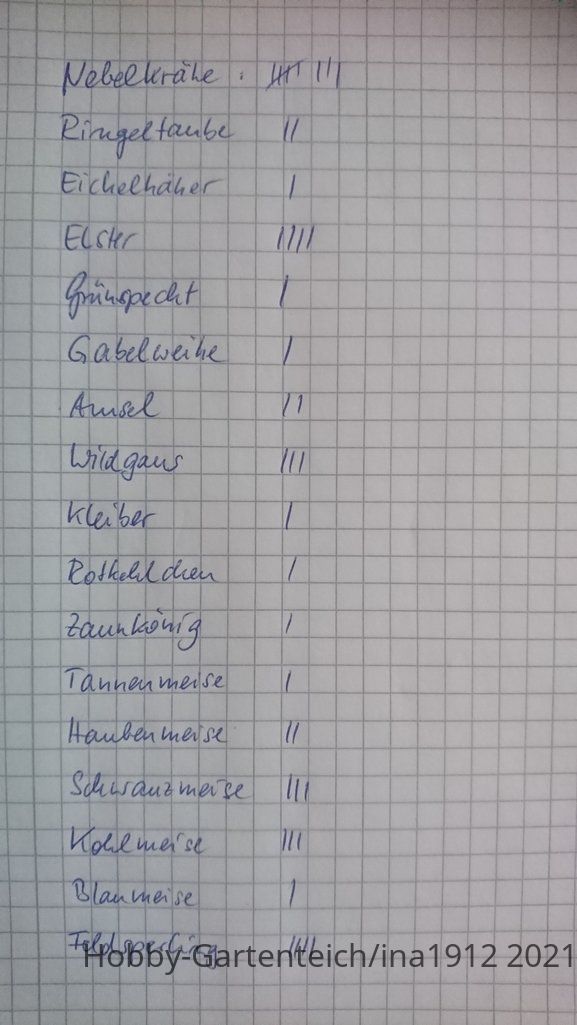 Nebelkrähe : |||| |||
Ringeltaube ||
Eichelhäher |
Elster ||||
Grünspecht |
Gabelweihe |
Amsel ||
Wildgans |||
Kleiber |
Rotkehlchen |
Zaunkönig |
Tannenmeise |
Haubenmeise ||
Schwanzmeise |||
Kohlmeise |||
Blaumeise |
Feldsperling
Hobby-Gartenteich/ina1912 2021